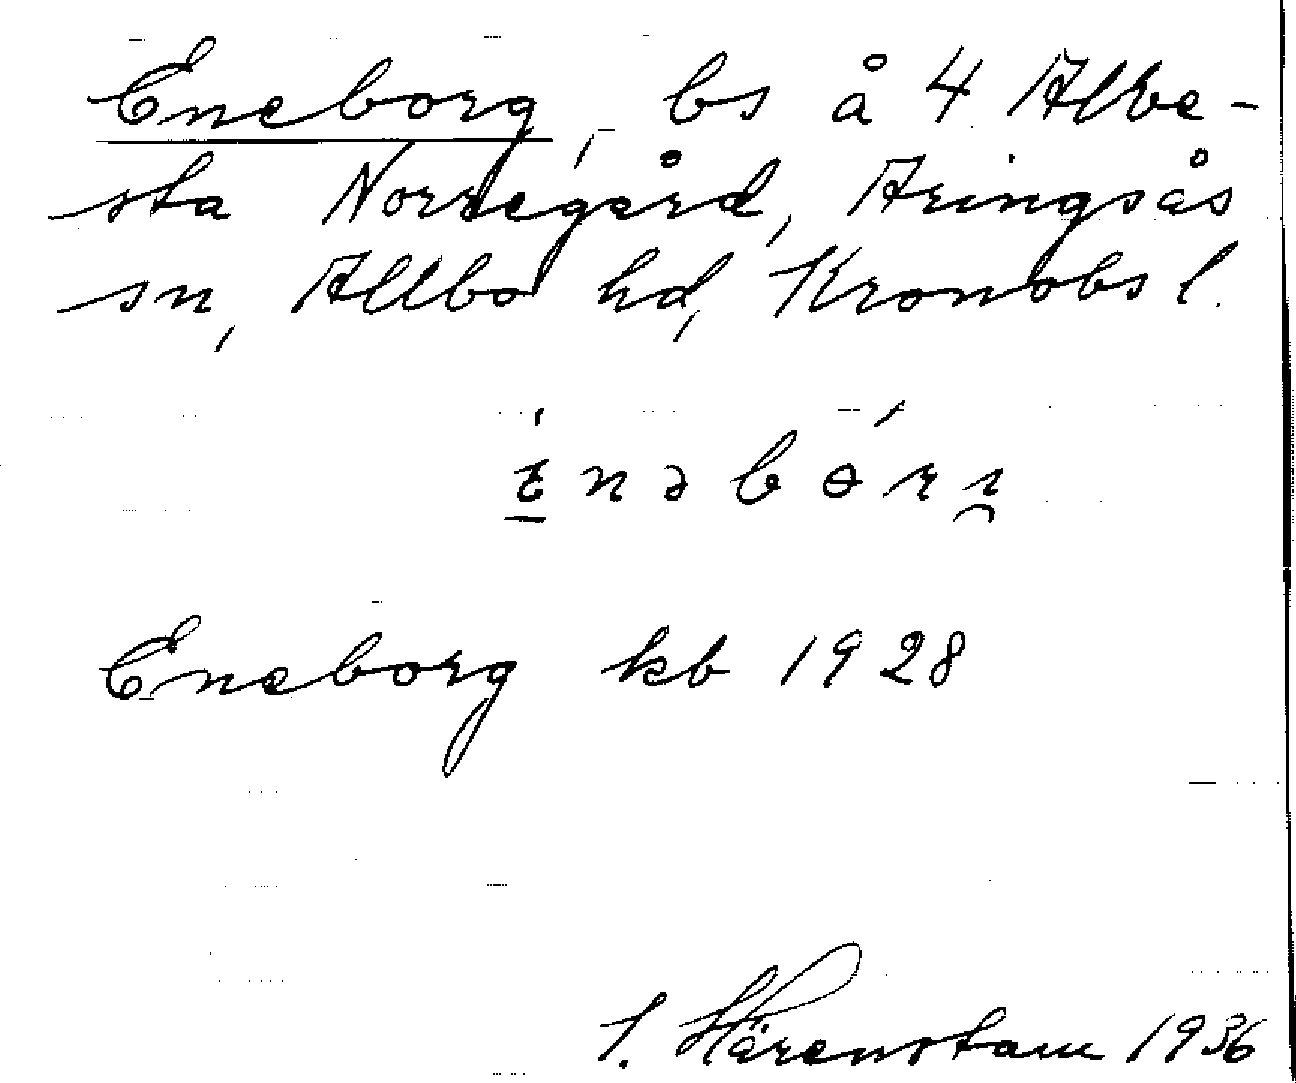 Eneborg, bs å 4 Albe-
sta Norregård, Aringsås
sn, Allbo hd, Kronobs l.
Eneborg kb 1928
Härenstam 1936